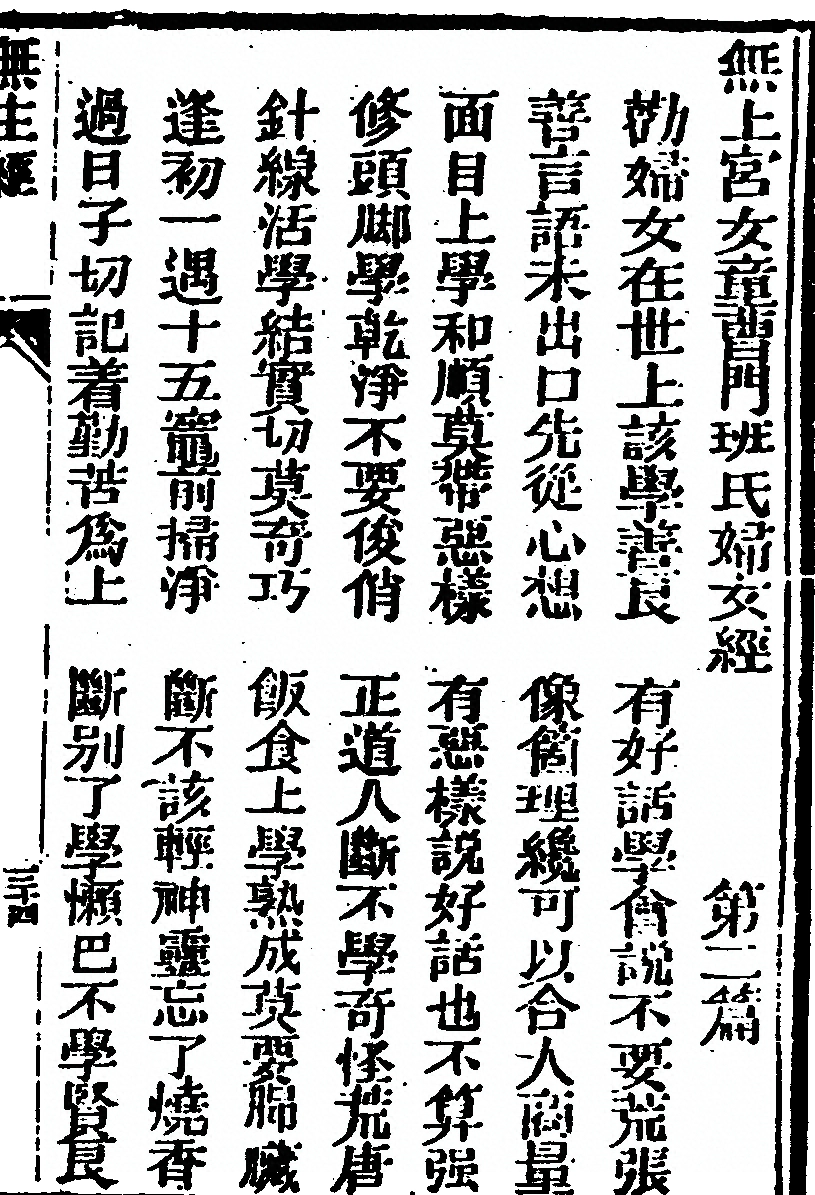 無上宮女童曹門班氏婦女經　第二篇
勸婦女在世上該學善良　有好話學會說不要荒張
善言語未出口先從心想　像箇理纔可以合人商量
面目上學和順莫帶惡樣　有惡樣說好話也不算强
修頭脚學乾淨不要俊俏　正道人斷不學奇怪荒唐
針線活學結實切莫奇巧　飯食上學熟成莫要腤臟
逢初一遇十五竈前掃淨　斷不該輕神靈忘了燒香
過日子切記着勤苦爲上　斷别了學懶巴不學賢良
無生經
三十四